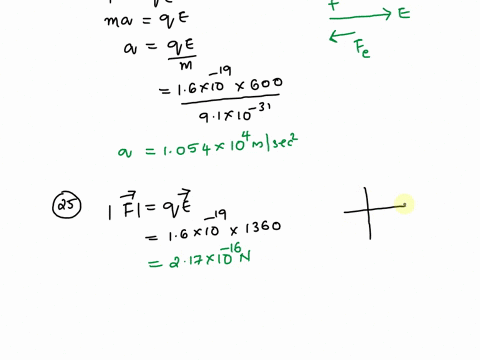 ma = qE
a = qE / m
= 1.6×10^-19 × 600 / 9.1×10^-31
a = 1.054×10^4 m/sec^2
F
E
Fe
(25) |F⃗| = qE⃗
= 1.6×10^-19 × 1360
= 2.17×10^-16 N